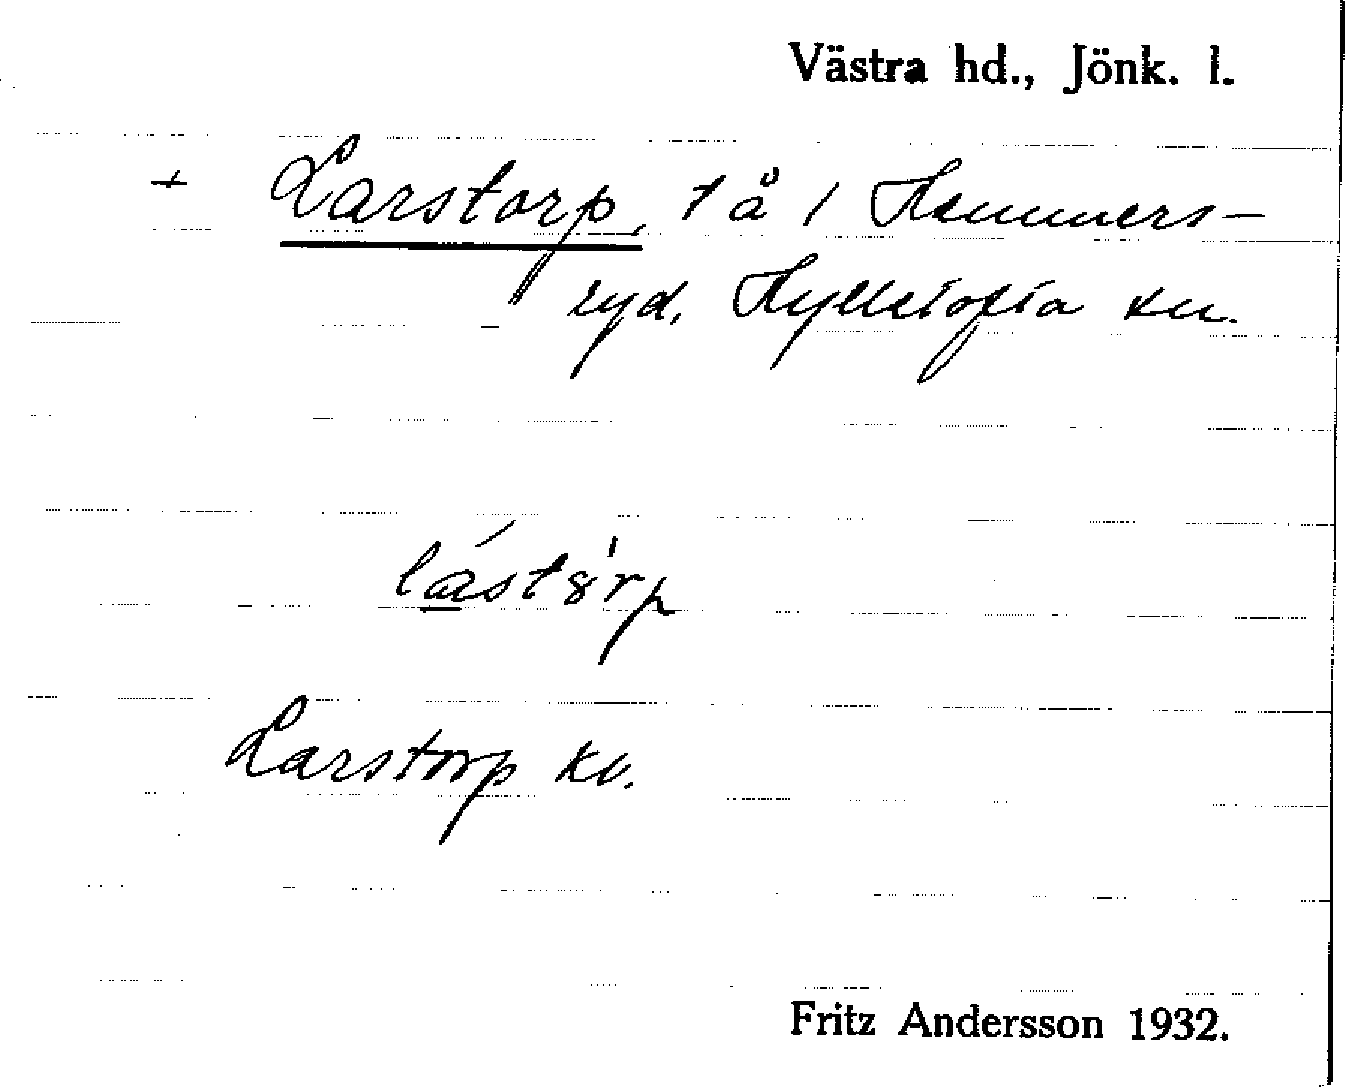 Västra hd., Jönk. l.
+ Larstorp, t å / Hemmers-
ryd, Hylletofta sn.
lástörp
Larstorp kv.
Fritz Andersson 1932.